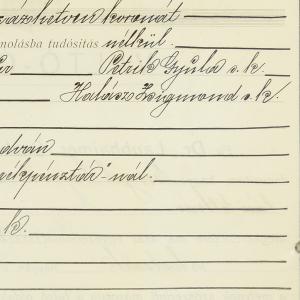 százhetven koronát
molásba tudósítás nélkül.
Petrik Gyula s. k.
Halász Zsigmond s. k.
advány
nékpénztár"-nál.
k.